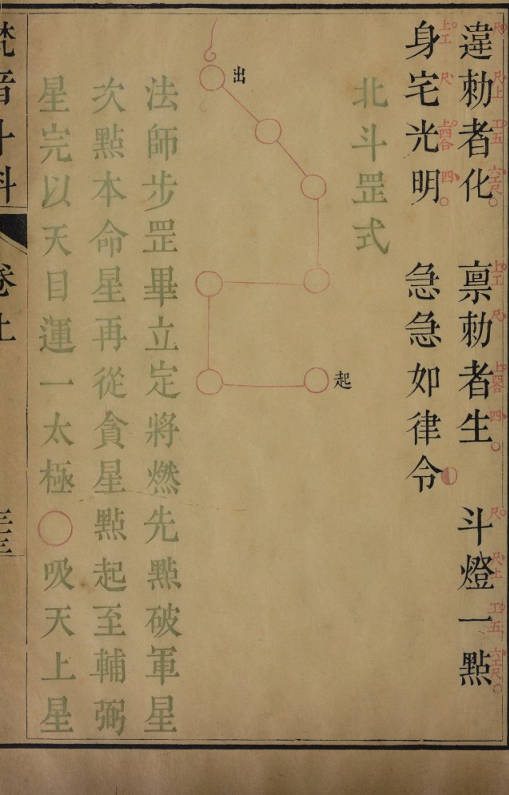 違勅者化 禀勅者生 斗燈一點
身宅光明 急急如律令
北斗罡式
出
起
法師步罡畢立定將燃先點破軍星
次點本命星再從貪星點起至輔弼
星完以天目運一太極〇吸天上星
梵音斗科 卷上